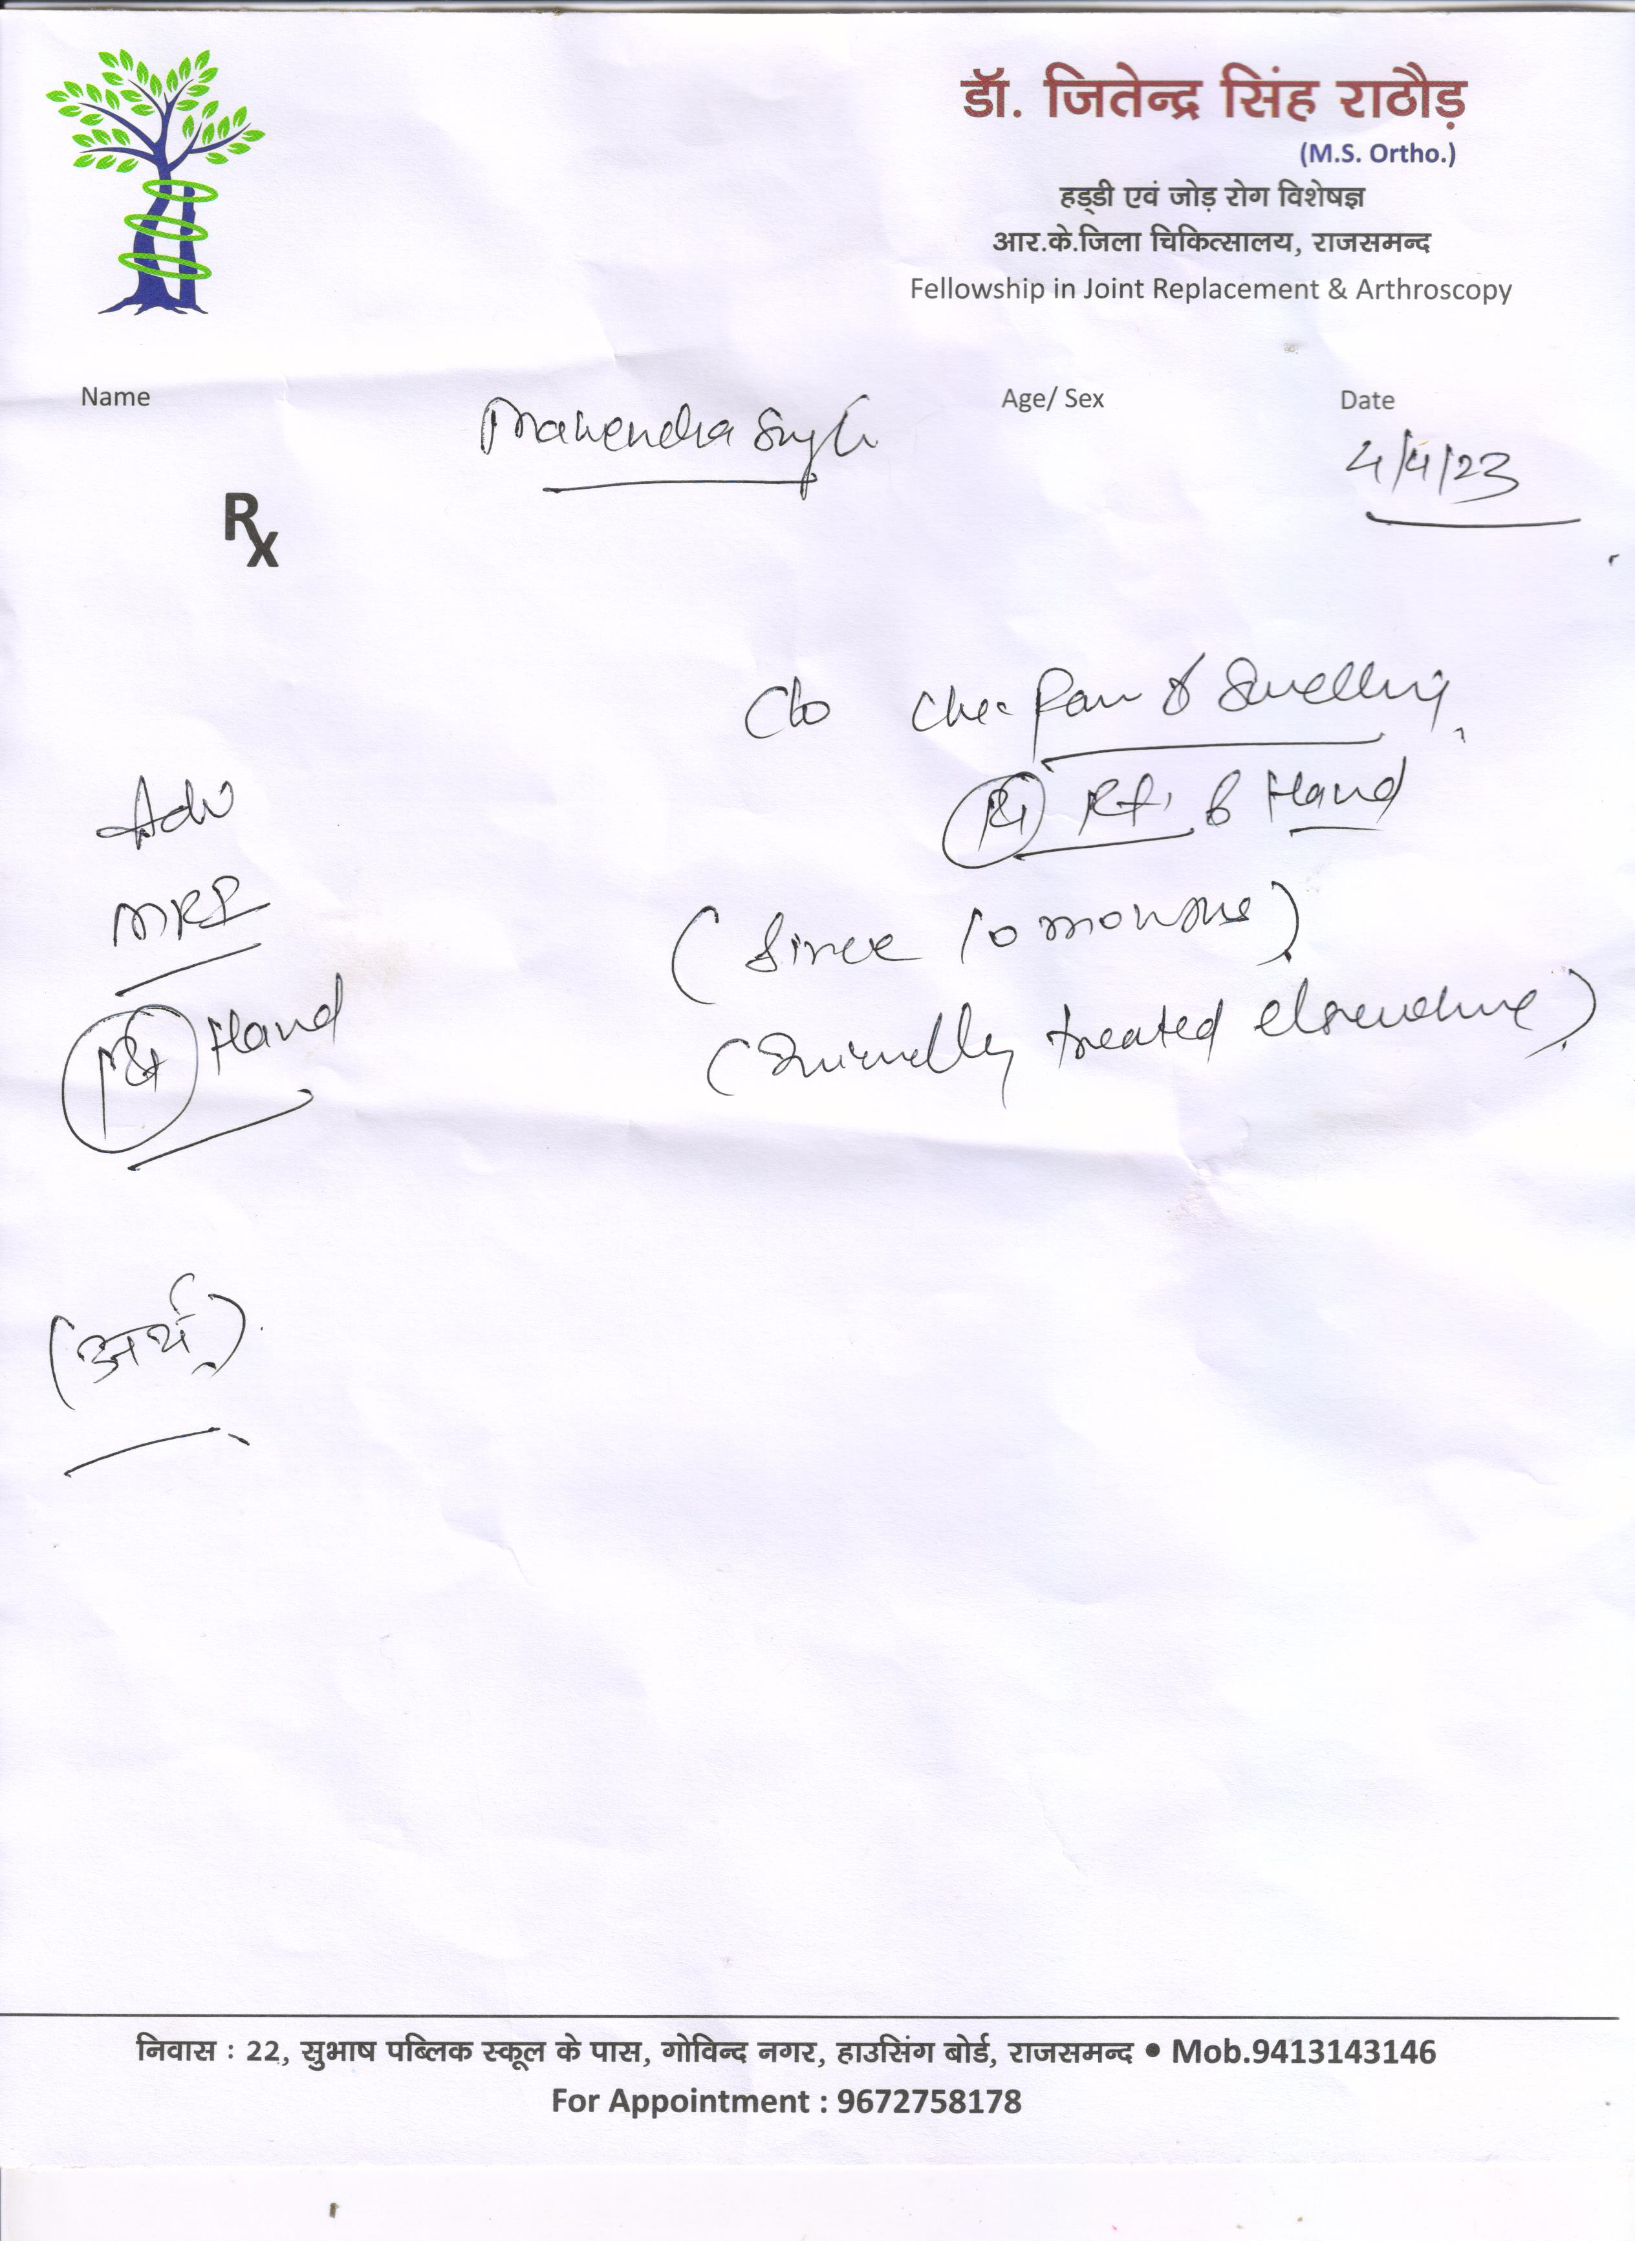 डॉ. जितेन्द्र सिंह राठौड़
(M.S. Ortho.)
हड्डी एवं जोड़ रोग विशेषज्ञ
आर.के.जिला चिकित्सालय, राजसमन्द
Fellowship in Joint Replacement & Arthroscopy
Name Mahendra Singh Age/ Sex Date
4/4/23
Rx
C/o Pain & Swelling
Hand
Adv
MRI
(since 10 months)
Rt Hand
treated elsewhere)
(अर्थ)
निवास : 22, सुभाष पब्लिक स्कूल के पास, गोविन्द नगर, हाउसिंग बोर्ड, राजसमन्द • Mob.9413143146
For Appointment : 9672758178